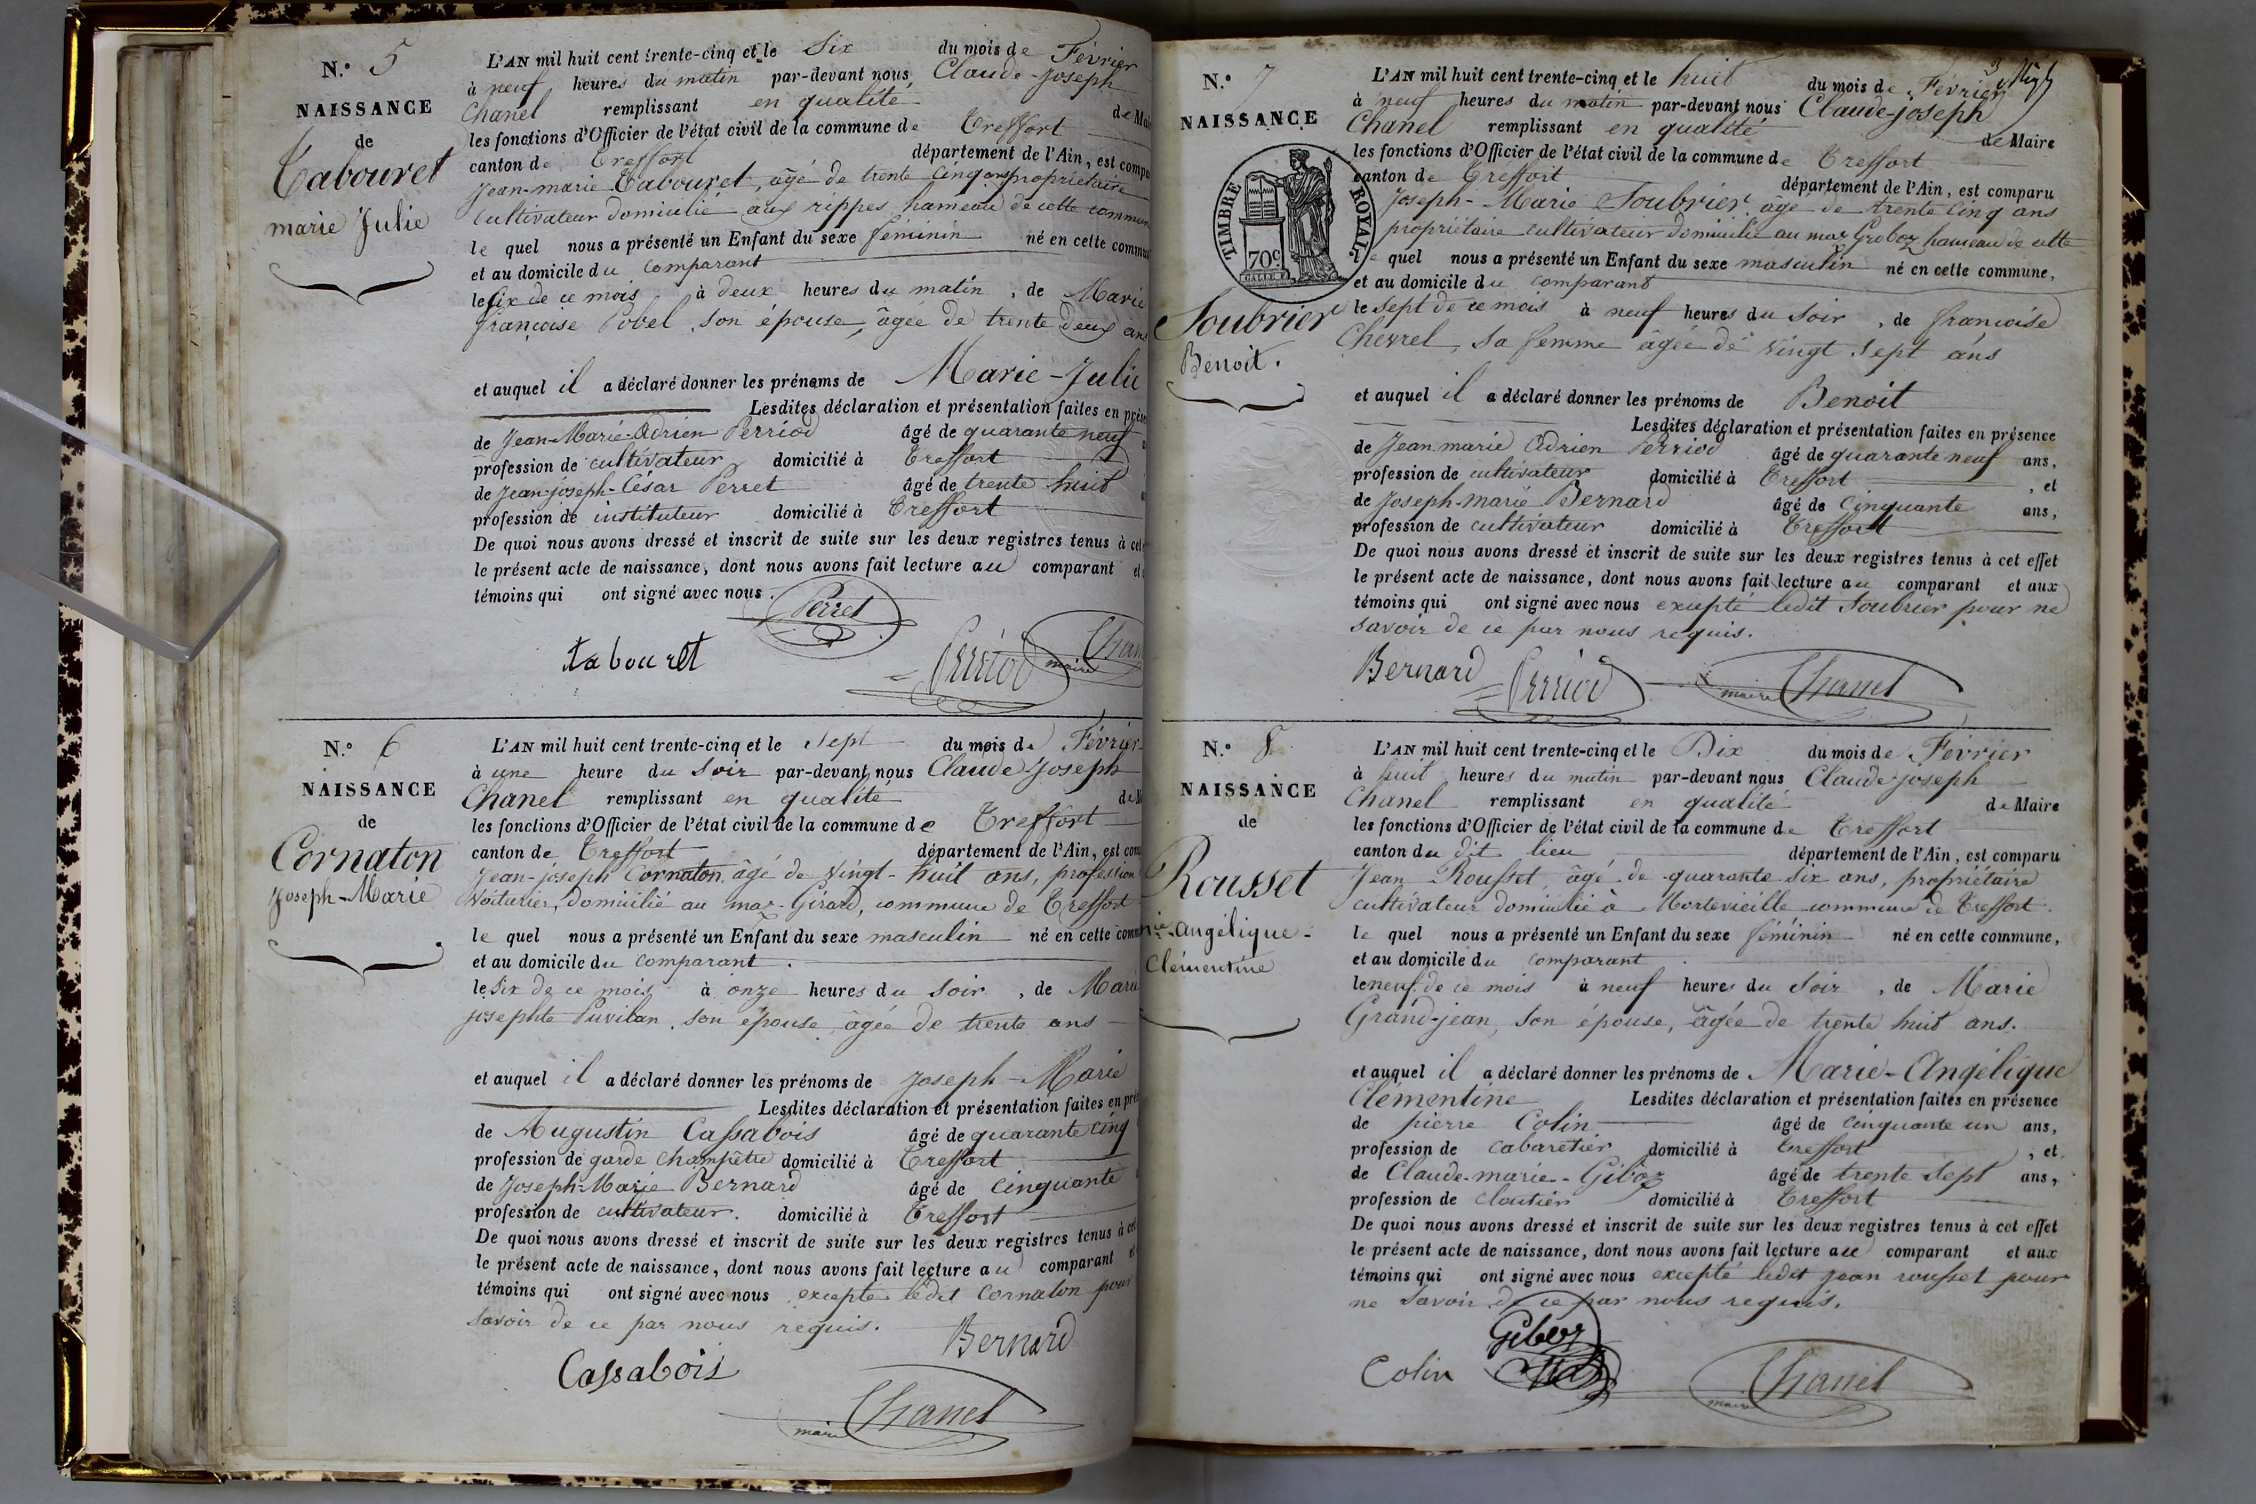 N.° 5
NAISSANCE
de
Tabouret
marie Julie
L'AN mil huit cent trente-cinq et le Six du mois de Février
à neuf heures du matin par-devant nous Claude-Joseph
Chanel remplissant en qualité de Mai
les fonctions d'Officier de l'état civil de la commune de Treffort
canton de Treffort département de l'Ain, est compa
Jean-marie Tabouret, âgé de trente cinq ans propriétaire
cultivateur domicilié aux rippes hameau de cette commun
le quel nous a présenté un Enfant du sexe féminin né en cette commu
et au domicile du comparant
le Six de ce mois à deux heures du matin, de Marie
françoise Pobel, son épouse, âgée de trente deux ans
et auquel il a déclaré donner les prénoms de Marie-Julie
Lesdites déclaration et présentation faites en prése
de Jean-Marie-Adrien Perriod âgé de quarante neuf
profession de cultivateur domicilié à Treffort
de Jean-joseph-César Perret âgé de trente huit
profession de instituteur domicilié à Treffort
De quoi nous avons dressé et inscrit de suite sur les deux registres tenus à cet
le présent acte de naissance, dont nous avons fait lecture au comparant et
témoins qui ont signé avec nous.
Perret
tabouret Perriod maire Chan
N.° 6
NAISSANCE
de
Cornaton
Joseph-Marie
L'AN mil huit cent trente-cinq et le Sept du mois de Février
à une heure du Soir par-devant nous Claude Joseph
Chanel remplissant en qualité de M
les fonctions d'Officier de l'état civil de la commune de Treffort
canton de Treffort département de l'Ain, est com
Jean-joseph Cornaton, âgé de vingt-huit ans, profession
Voiturier, domicilié au mas-Girard, commune de Treffort
le quel nous a présenté un Enfant du sexe masculin né en cette comm
et au domicile du comparant.
le Six de ce mois à onze heures du Soir, de Marie
josephte Puvilan, son épouse, âgée de trente ans
et auquel il a déclaré donner les prénoms de Joseph-Marie
Lesdites déclaration et présentation faites en pré
de Augustin Cassabois âgé de quarante cinq
profession de garde champêtre domicilié à Treffort
de Joseph-Marie Bernard âgé de cinquante
profession de cultivateur. domicilié à Treffort
De quoi nous avons dressé et inscrit de suite sur les deux registres tenus à cet
le présent acte de naissance, dont nous avons fait lecture au comparant et
témoins qui ont signé avec nous excepté ledit Cornaton pour
savoir de ce par nous requis.
Bernard
Cassabois
maire Chanel
N.° 7
NAISSANCE
TIMBRE ROYAL
70c
Soubrier
Benoit.
L'AN mil huit cent trente-cinq et le huit du mois de Février
à neuf heures du matin par-devant nous Claude-joseph
Chanel remplissant en qualité de Maire
les fonctions d'Officier de l'état civil de la commune de Treffort
canton de Treffort département de l'Ain, est comparu
Joseph-Marie Soubrier âgé de trente cinq ans
propriétaire cultivateur domicilié au mas Groboz hameau de cette
le quel nous a présenté un Enfant du sexe masculin né en cette commune,
et au domicile du comparant
le Sept de ce mois à neuf heures du soir, de françoise
Chevrel, Sa femme âgée de vingt Sept ans
et auquel il a déclaré donner les prénoms de Benoit
Lesdites déclaration et présentation faites en présence
de Jean marie Adrien Perriod âgé de quarante neuf ans,
profession de cultivateur domicilié à Treffort, et
de Joseph-marie Bernard âgé de Cinquante ans,
profession de cultivateur domicilié à Treffort
De quoi nous avons dressé et inscrit de suite sur les deux registres tenus à cet effet
le présent acte de naissance, dont nous avons fait lecture au comparant et aux
témoins qui ont signé avec nous excepté ledit Soubrier pour ne
savoir de ce par nous requis.
Bernard Perriod maire Chanel
N.° 8
NAISSANCE
de
Rousset
Angélique-
Clémentine
L'AN mil huit cent trente-cinq et le Dix du mois de Février
à huit heures du matin par-devant nous Claude-joseph
Chanel remplissant en qualité de Maire
les fonctions d'Officier de l'état civil de la commune de Treffort
canton du dit lieu département de l'Ain, est comparu
Jean Rousset, âgé de quarante Six ans, propriétaire
cultivateur domicilié à Mortevieille commune de Treffort.
le quel nous a présenté un Enfant du sexe féminin né en cette commune,
et au domicile du comparant.
le neuf de ce mois à neuf heures du Soir, de Marie
Grand-jean, Son épouse, âgée de trente huit ans.
et auquel il a déclaré donner les prénoms de Marie-Angélique
Clémentine Lesdites déclaration et présentation faites en présence
de pierre Colin âgé de Cinquante un ans,
profession de cabaretier domicilié à Treffort, et
de Claude-marie-Giboz âgé de trente Sept ans,
profession de cloutier domicilié à Treffort
De quoi nous avons dressé et inscrit de suite sur les deux registres tenus à cet effet
le présent acte de naissance, dont nous avons fait lecture au comparant et aux
témoins qui ont signé avec nous excepté ledit jean rousset pour
ne Savoir de ce par nous requis.
Giboz
Colin maire Chanel